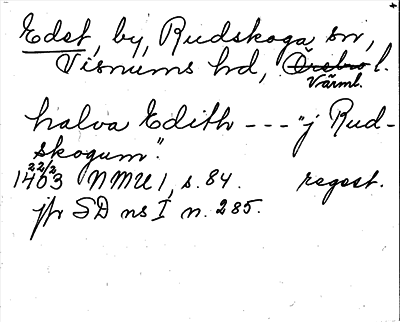 Edet, by, Rudskoga sn,
Visnums hd, Örebro l.
Värml.
halva Edith --- "j Rud-
skogum".
22/2
1403 NMU 1, s. 84. regest.
jfr SD ns I n. 285.